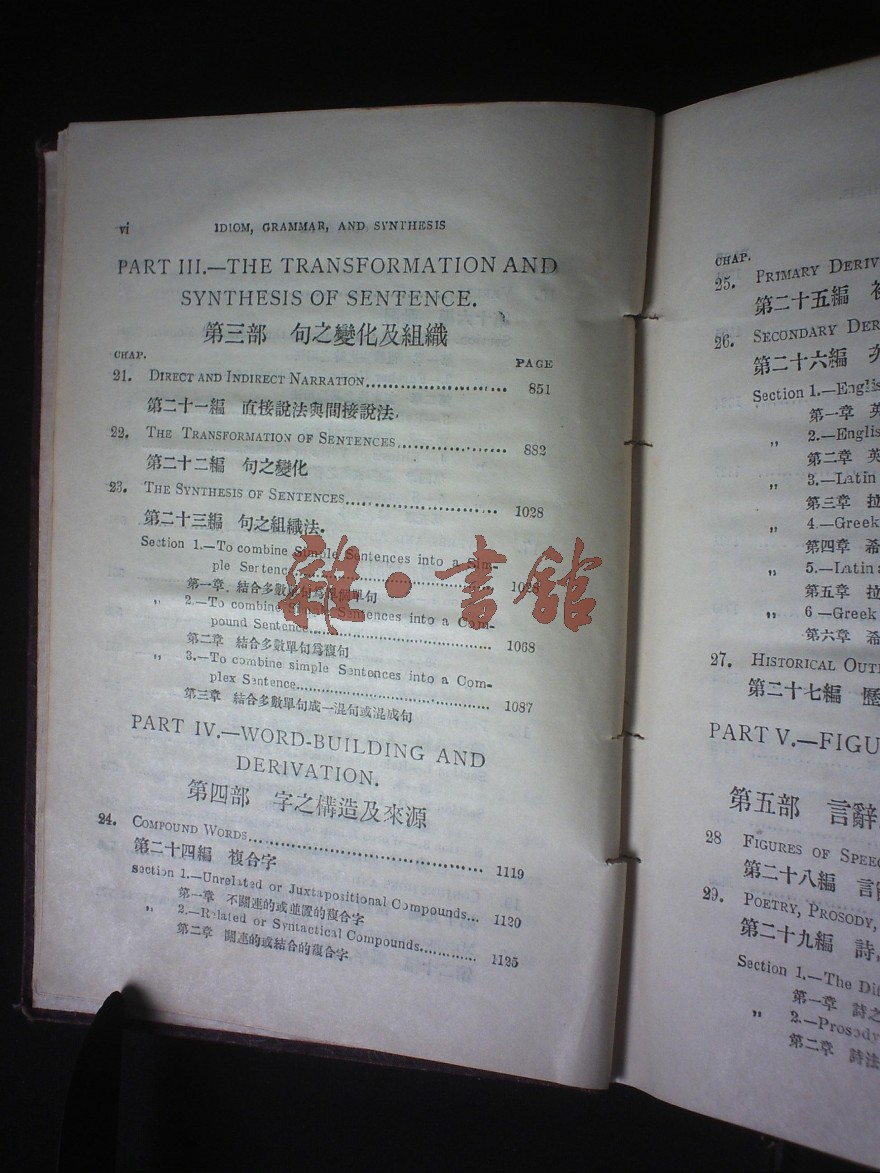 vi IDIOM, GRAMMAR, AND SYNTHESIS
PART III.—THE TRANSFORMATION AND
SYNTHESIS OF SENTENCE.
第三部 句之變化及組織
CHAP. PAGE
21. DIRECT AND INDIRECT NARRATION 851
第二十一編 直接說法與間接說法.
22. THE TRANSFORMATION OF SENTENCES 882
第二十二編 句之變化
23. THE SYNTHESIS OF SENTENCES 1028
第二十三編 句之組織法.
Section 1.—To combine Simple Sentences into a Sim-
ple Sentence 1028
第一章 結合多數單句為單句
„ 2.—To combine Simple Sentences into a Com-
pound Sentence 1068
第二章 結合多數單句爲複句
„ 3.—To combine simple Sentences into a Com-
plex Sentence 1087
第三章 結合多數單句成一混句或混成句
PART IV.—WORD-BUILDING AND
DERIVATION.
第四部 字之構造及來源
24. COMPOUND WORDS 1119
第二十四編 複合字
Section 1.—Unrelated or Juxtapositional Compounds... 1120
第一章 不關連的或並置的複合字
„ 2.—Related or Syntactical Compounds 1125
第二章 關連的或結合的複合字
雜·書舘
CHAP.
25. PRIMARY DERIV
第二十五編
26. SECONDARY DER
第二十六編
Section 1.—Englis
第一章 英
„ 2.—Englis
第二章 英
„ 3.—Latin
第三章 拉
„ 4.—Greek
第四章 希
„ 5.—Latin a
第五章 拉
„ 6—Greek
第六章 希
27. HISTORICAL OUT
第二十七編 歷
PART V.—FIGU
第五部 言辭
28 FIGURES OF SPEEC
第二十八編 言
29. POETRY, PROSODY,
第二十九編 詩,
Section 1.—The Di
第一章 詩之
„ 2.—Prosody
第二章 詩法